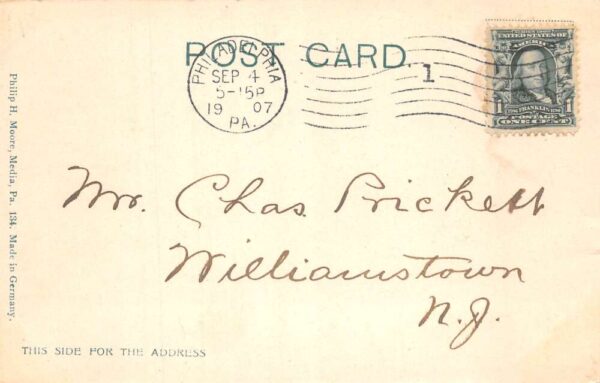 POST CARD.
PHILADELPHIA
SEP 4
5-15P
1907
PA.
1
UNITED STATES OF
AMERICA
1 FRANKLIN 1
POSTAGE
ONE CENT
Mr. Chas. Prickett
Williamstown
N.J.
THIS SIDE FOR THE ADDRESS
Philip H. Moore, Media, Pa. 134. Made in Germany.